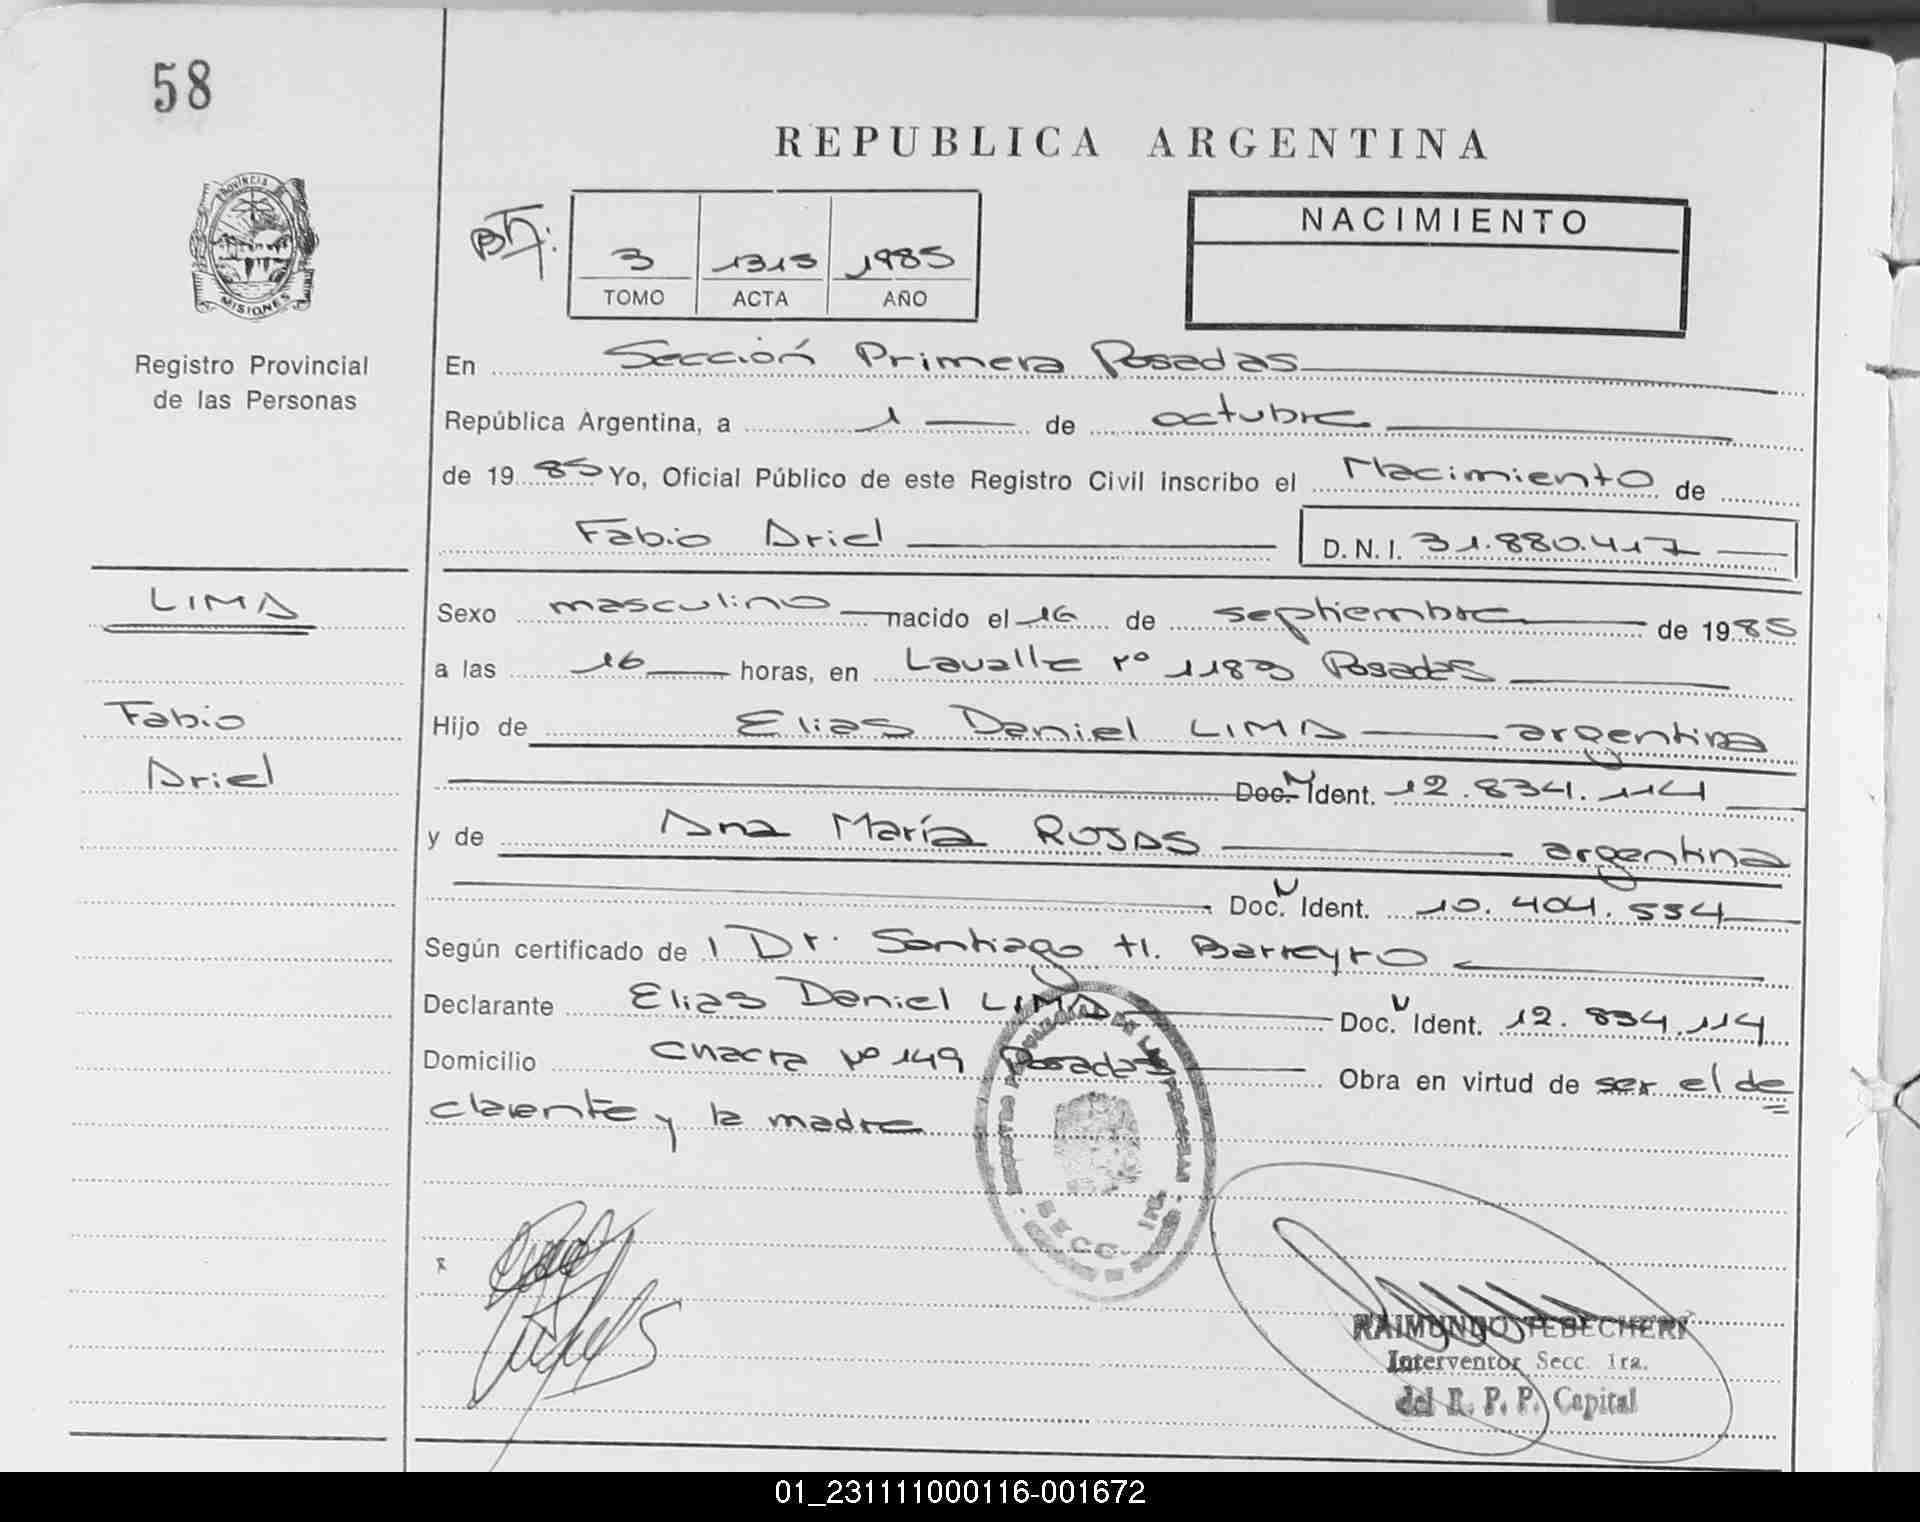 58
REPUBLICA ARGENTINA
PROVINCIA DE
MISIONES
3 1315 1985
TOMO ACTA AÑO
NACIMIENTO
Registro Provincial
de las Personas
En Sección Primera Posadas
República Argentina, a 1 de octubre
de 1985 Yo, Oficial Público de este Registro Civil inscribo el Nacimiento de
Fabio Ariel D.N.I. 31.880.417
LIMA
Fabio
Ariel
Sexo masculino nacido el 16 de septiembre de 1985
a las 16 horas, en Lavalle nº 1183 Posadas
Hijo de Elias Daniel LIMA argentina
Doc. N Ident. 12.834.114
y de Ana María ROJAS argentina
Doc. N Ident. 10.404.534
Según certificado de l Dr. Santiago H. Barreyro
Declarante Elias Daniel LIMA Doc. N Ident. 12.834.114
Domicilio Chacra Nº 149 Posadas Obra en virtud de ser el de
clarante y la madre
REGISTRO PROVINCIAL DE LAS PERSONAS
SECC. 1RA.
RAIMUNDO TEBECHERI
Interventor Secc. 1ra.
del R. P. P. Capital
01_231111000116-001672